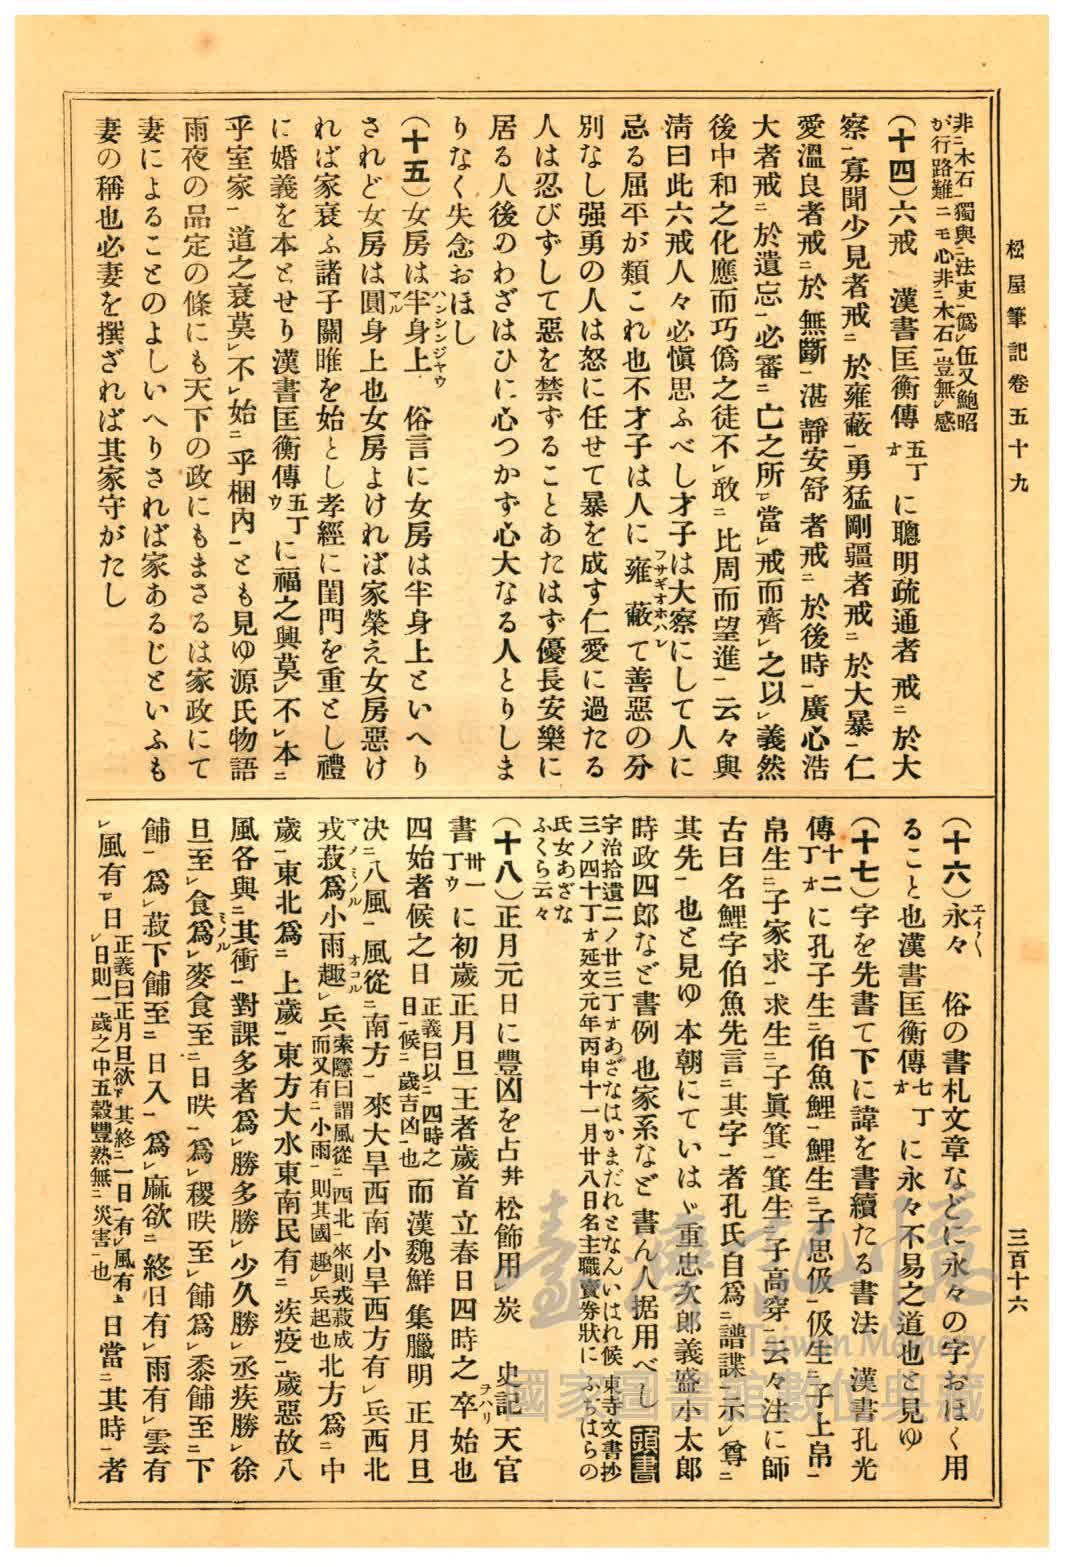 松屋筆記卷五十九
三百十六
非ニ木石一獨與ニ法吏一僞レ伍又鮑昭
が行路難ニモ心非ニ木石一豈無レ感
(十四)六戒　漢書匡衡傳五丁オに聰明疏通者戒ニ於大
察一寡聞少見者戒ニ於雍蔽一勇猛剛疆者戒ニ於大暴一仁
愛溫良者戒ニ於無斷一湛靜安舒者戒ニ於後時一廣心浩
大者戒ニ於遺忘一必審ニ亡之所ヒ當レ戒而齊レ之以レ義然
後中和之化應而巧僞之徒不レ敢ニ比周而望進一云々與
淸曰此六戒人々必愼思ふべし才子は大察にして人に
忌る屈平が類これ也不才子は人に雍蔽フサギオホハレて善惡の分
別なし强勇の人は怒に任せて暴を成す仁愛に過たる
人は忍びずして惡を禁ずることあたはず優長安樂に
居る人後のわざはひに心つかず心大なる人とりしま
りなく失念おほし
(十五)女房は半身上ハンシンジャウ　俗言に女房は半身上といへり
されど女房は圓マル身上也女房よければ家榮え女房惡け
れば家衰ふ諸子關雎を始とし孝經に閨門を重とし禮
に婚義を本とせり漢書匡衡傳五丁ウに福之興莫レ不レ本ニ
乎室家一道之衰莫レ不レ始ニ乎梱內一とも見ゆ源氏物語
雨夜の品定の條にも天下の政にもまさるは家政にて
妻によることのよしいへりされば家あるじといふも
妻の稱也必妻を撰ざれば其家守がたし
(十六)永々エイ〱　俗の書札文章などに永々の字おほく用
ること也漢書匡衡傳七丁オに永々不易之道也と見ゆ
(十七)字を先書て下に諱を書續たる書法　漢書孔光
傳十二丁オに孔子生ニ伯魚鯉一鯉生ニ子思伋一伋生ニ子上帛一
帛生ニ子家求一求生ニ子眞箕一箕生ニ子高穿一云々注に師
古曰名鯉字伯魚先言ニ其字一者孔氏自爲ニ譜諜一示レ尊ニ
其先一也と見ゆ本朝にていはゞ重忠次郎義盛小太郎
時政四郎など書例也家系など書ん人据用べし頭書
宇治拾遺二ノ廿三丁オあざなはかまだれとなんいはれ候東寺文書抄
三ノ四十丁オ延文元年丙申十一月廿八日名主職賣券狀にふぢはらの
氏女あざな
ふくら云々
(十八)正月元日に豐凶を占幷松飾用レ炭　史記天官
書卅一丁ウに初歲正月旦王者歲首立春日四時之卒ヲハリ始也
四始者候之日正義曰以ニ四時之日一候ニ歲吉凶一也而漢魏鮮集臘明正月旦
决ニ八風一風從ニ南方一來大旱西南小旱西方有レ兵西北
戎菽マノミノル爲小雨趣オコルレ兵索隱曰謂風從ニ西北一來則戎菽成而又有ニ小雨一則其國趣レ兵起也北方爲ニ中
歲一東北爲ニ上歲一東方大水東南民有ニ疾疫一歲惡故八
風各與ニ其衝一對課多者爲レ勝多勝レ少久勝レ亟疾勝レ徐
旦至レ食爲レ麥食至ニ日昳一爲レ稷昳至レ餔爲レ黍餔至ニ下
餔一爲レ菽下餔至ニ日入一爲レ麻欲ニ終日有レ雨有レ雲有
レ風有ヒ日正義曰正月旦欲下其終ニ一日一有レ風有上レ日則一歲之中五穀豐熟無ニ災害一也日當ニ其時一者
臺灣記憶
Taiwan Memory
國家圖書館數位典藏